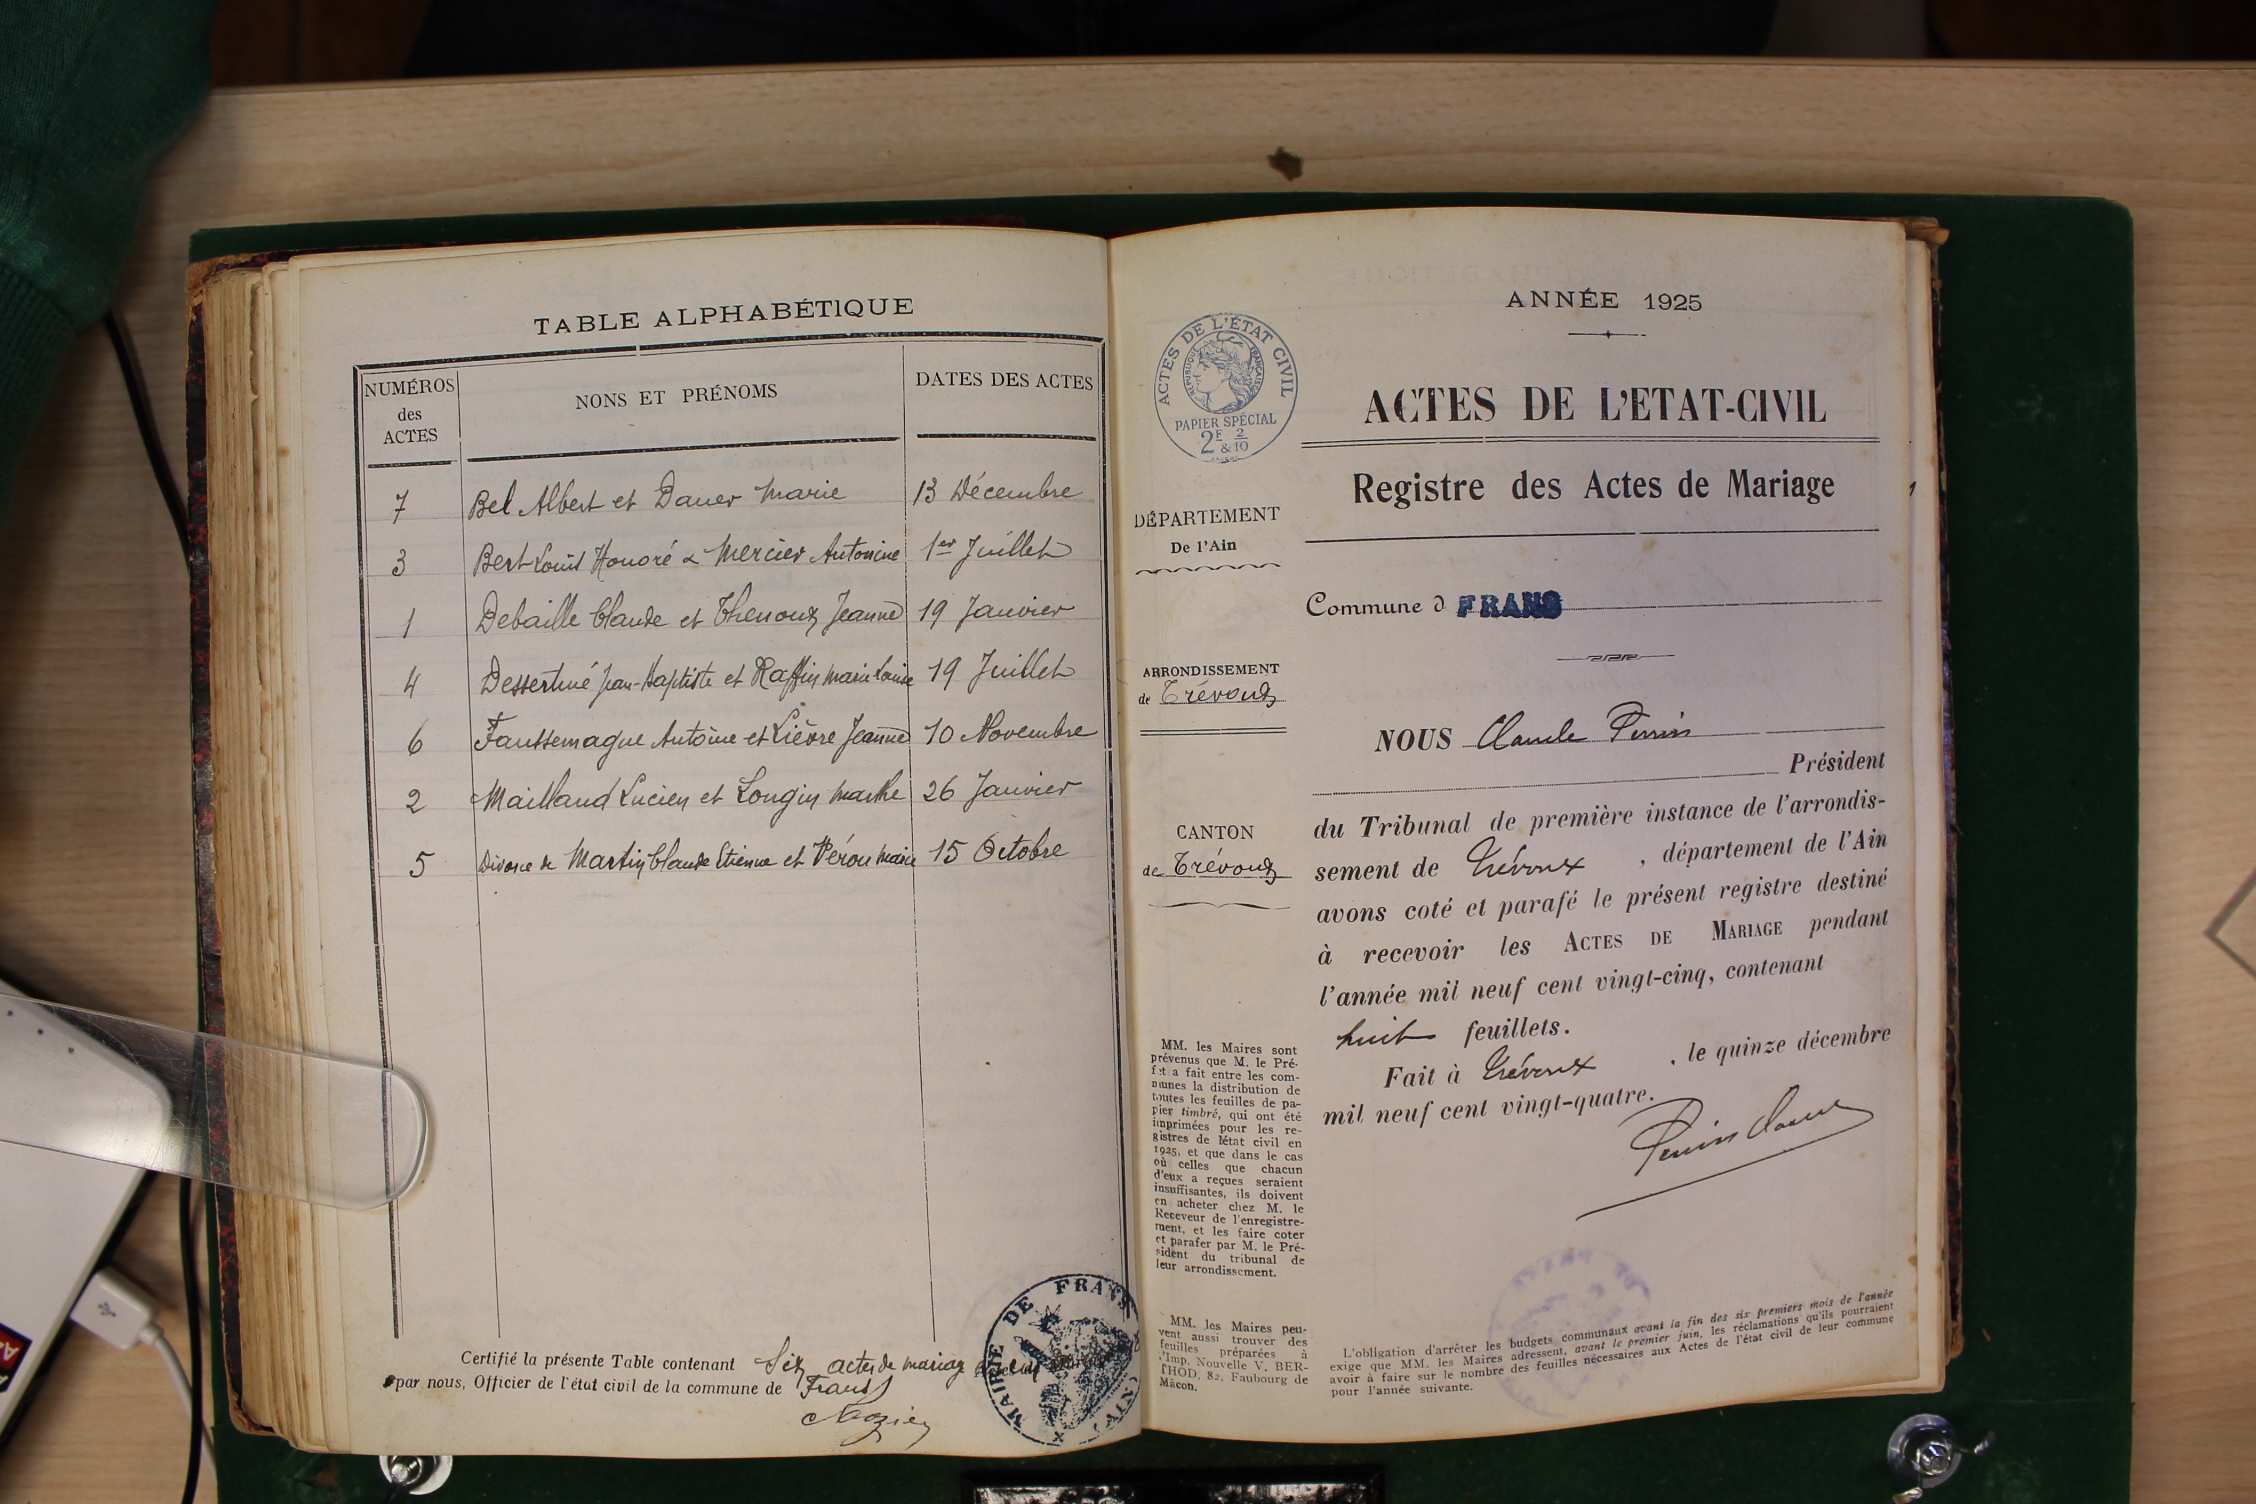 TABLE ALPHABÉTIQUE
NUMÉROS
des
ACTES
NONS ET PRÉNOMS
DATES DES ACTES
7 Bel Albert et Daner Marie 13 Décembre
3 Bert Louis Honoré & Mercier Antonine 1er Juillet
1 Debaille Claude et Thenoux Jeanne 19 Janvier
4 Dessertine Jean-Baptiste et Raffin Marie Louise 19 Juillet
6 Faussemagne Antoine et Lièvre Jeanne 10 Novembre
2 Mailland Lucien et Longin Marthe 26 Janvier
5 Divorce de Martin Claude Etienne et Péron Marie 15 Octobre
Certifié la présente Table contenant Six actes de mariage
par nous, Officier de l'état civil de la commune de Frans
MAIRIE DE FRANS (AIN)
ANNÉE 1925
ACTES DE L'ÉTAT CIVIL
RÉPUBLIQUE FRANÇAISE
PAPIER SPÉCIAL
2F & 2/10
ACTES DE L'ETAT-CIVIL
Registre des Actes de Mariage
DÉPARTEMENT
De l'Ain
Commune d FRANS
ARRONDISSEMENT
de Trévoux
CANTON
de Trévoux
NOUS Claude Perrin
Président
du Tribunal de première instance de l'arrondis-
sement de Trévoux, département de l'Ain
avons coté et parafé le présent registre destiné
à recevoir les ACTES DE MARIAGE pendant
l'année mil neuf cent vingt-cinq, contenant
huit feuillets.
Fait à Trévoux, le quinze décembre
mil neuf cent vingt-quatre.
Perrin Claude
MM. les Maires sont
prévenus que M. le Pré-
fet a fait entre les com-
munes la distribution de
toutes les feuilles de pa-
pier timbré, qui ont été
imprimées pour les re-
gistres de l'état civil en
1925, et que dans le cas
où celles que chacun
d'eux a reçues seraient
insuffisantes, ils doivent
en acheter chez M. le
Receveur de l'enregistre-
ment, et les faire coter
et parafer par M. le Pré-
sident du tribunal de
leur arrondissement.
MM. les Maires peu-
vent aussi trouver des
feuilles préparées à
l'Imp. Nouvelle V. BER-
THOD, 82, Faubourg de
Mâcon.
L'obligation d'arrêter les budgets communaux avant la fin des six premiers mois de l'année
exige que MM. les Maires adressent, avant le premier juin, les réclamations qu'ils pourraient
avoir à faire sur le nombre des feuilles nécessaires aux Actes de l'état civil de leur commune
pour l'année suivante.